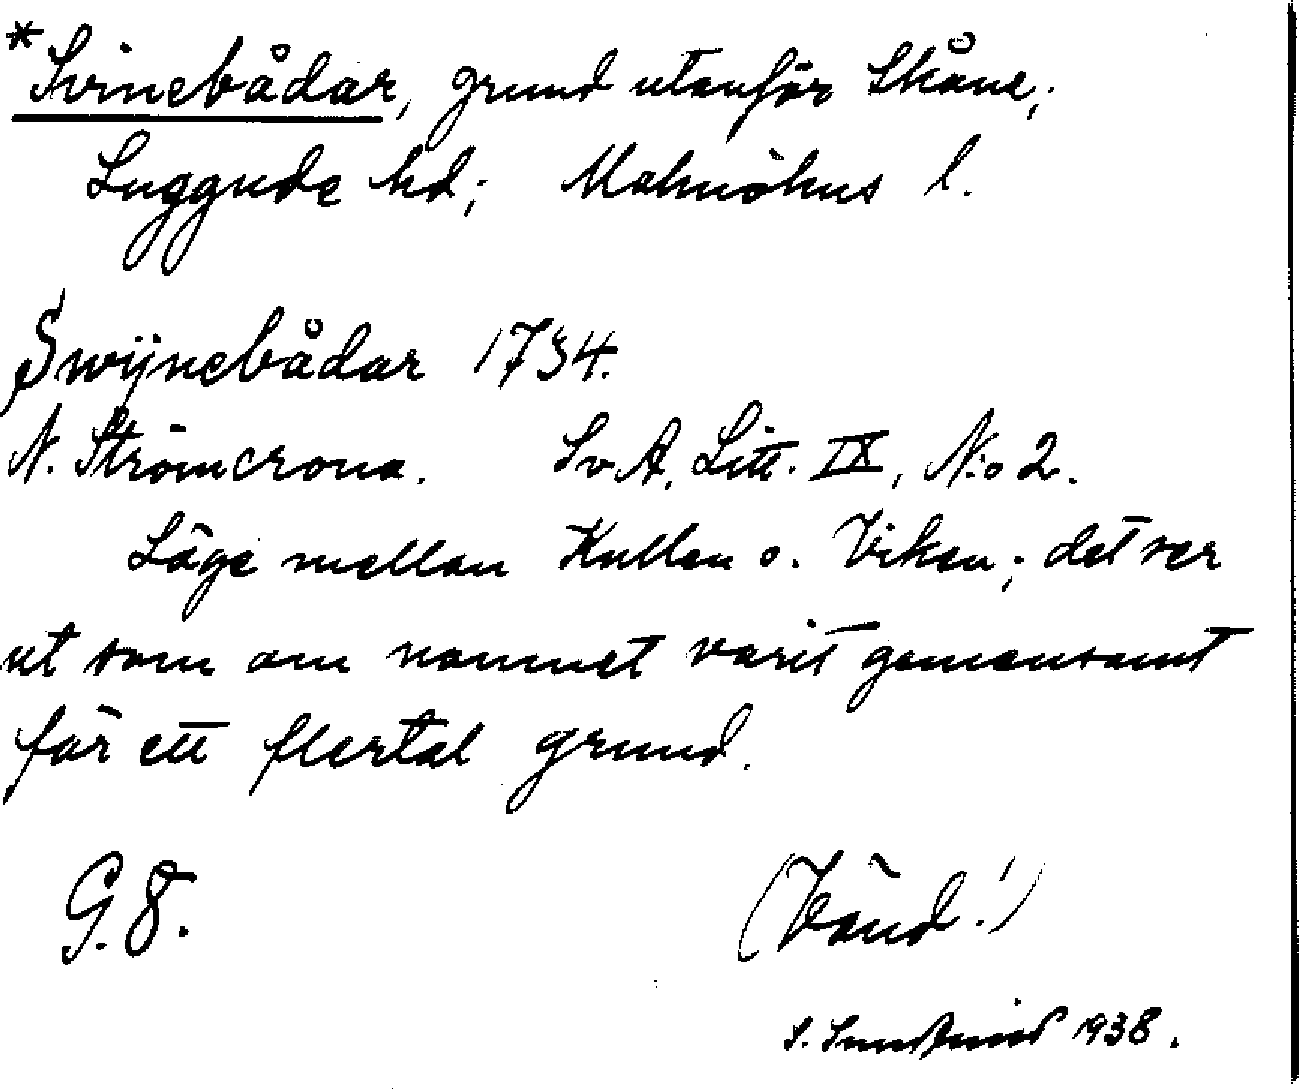 *Svinebådar, grund utanför Skåne;
Luggude hd; Malmöhus l.
Swijnebådar 1734.
N. Strömcrona. Sv A, Litt. IX, N:o 2.
Läge mellan Kullen o. Viken; det ser
ut som om namnet varit gemensamt
för ett flertal grund.
G. 8.
(Vänd!)
S. 1938.